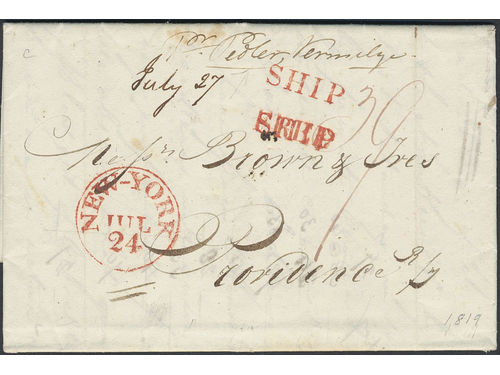 c
pr. Pedler, Vermilye
July 27
SHIP
SHIP
39
Messrs Brown & Ives
NEW-YORK
JUL
24
Providence R/I
1819